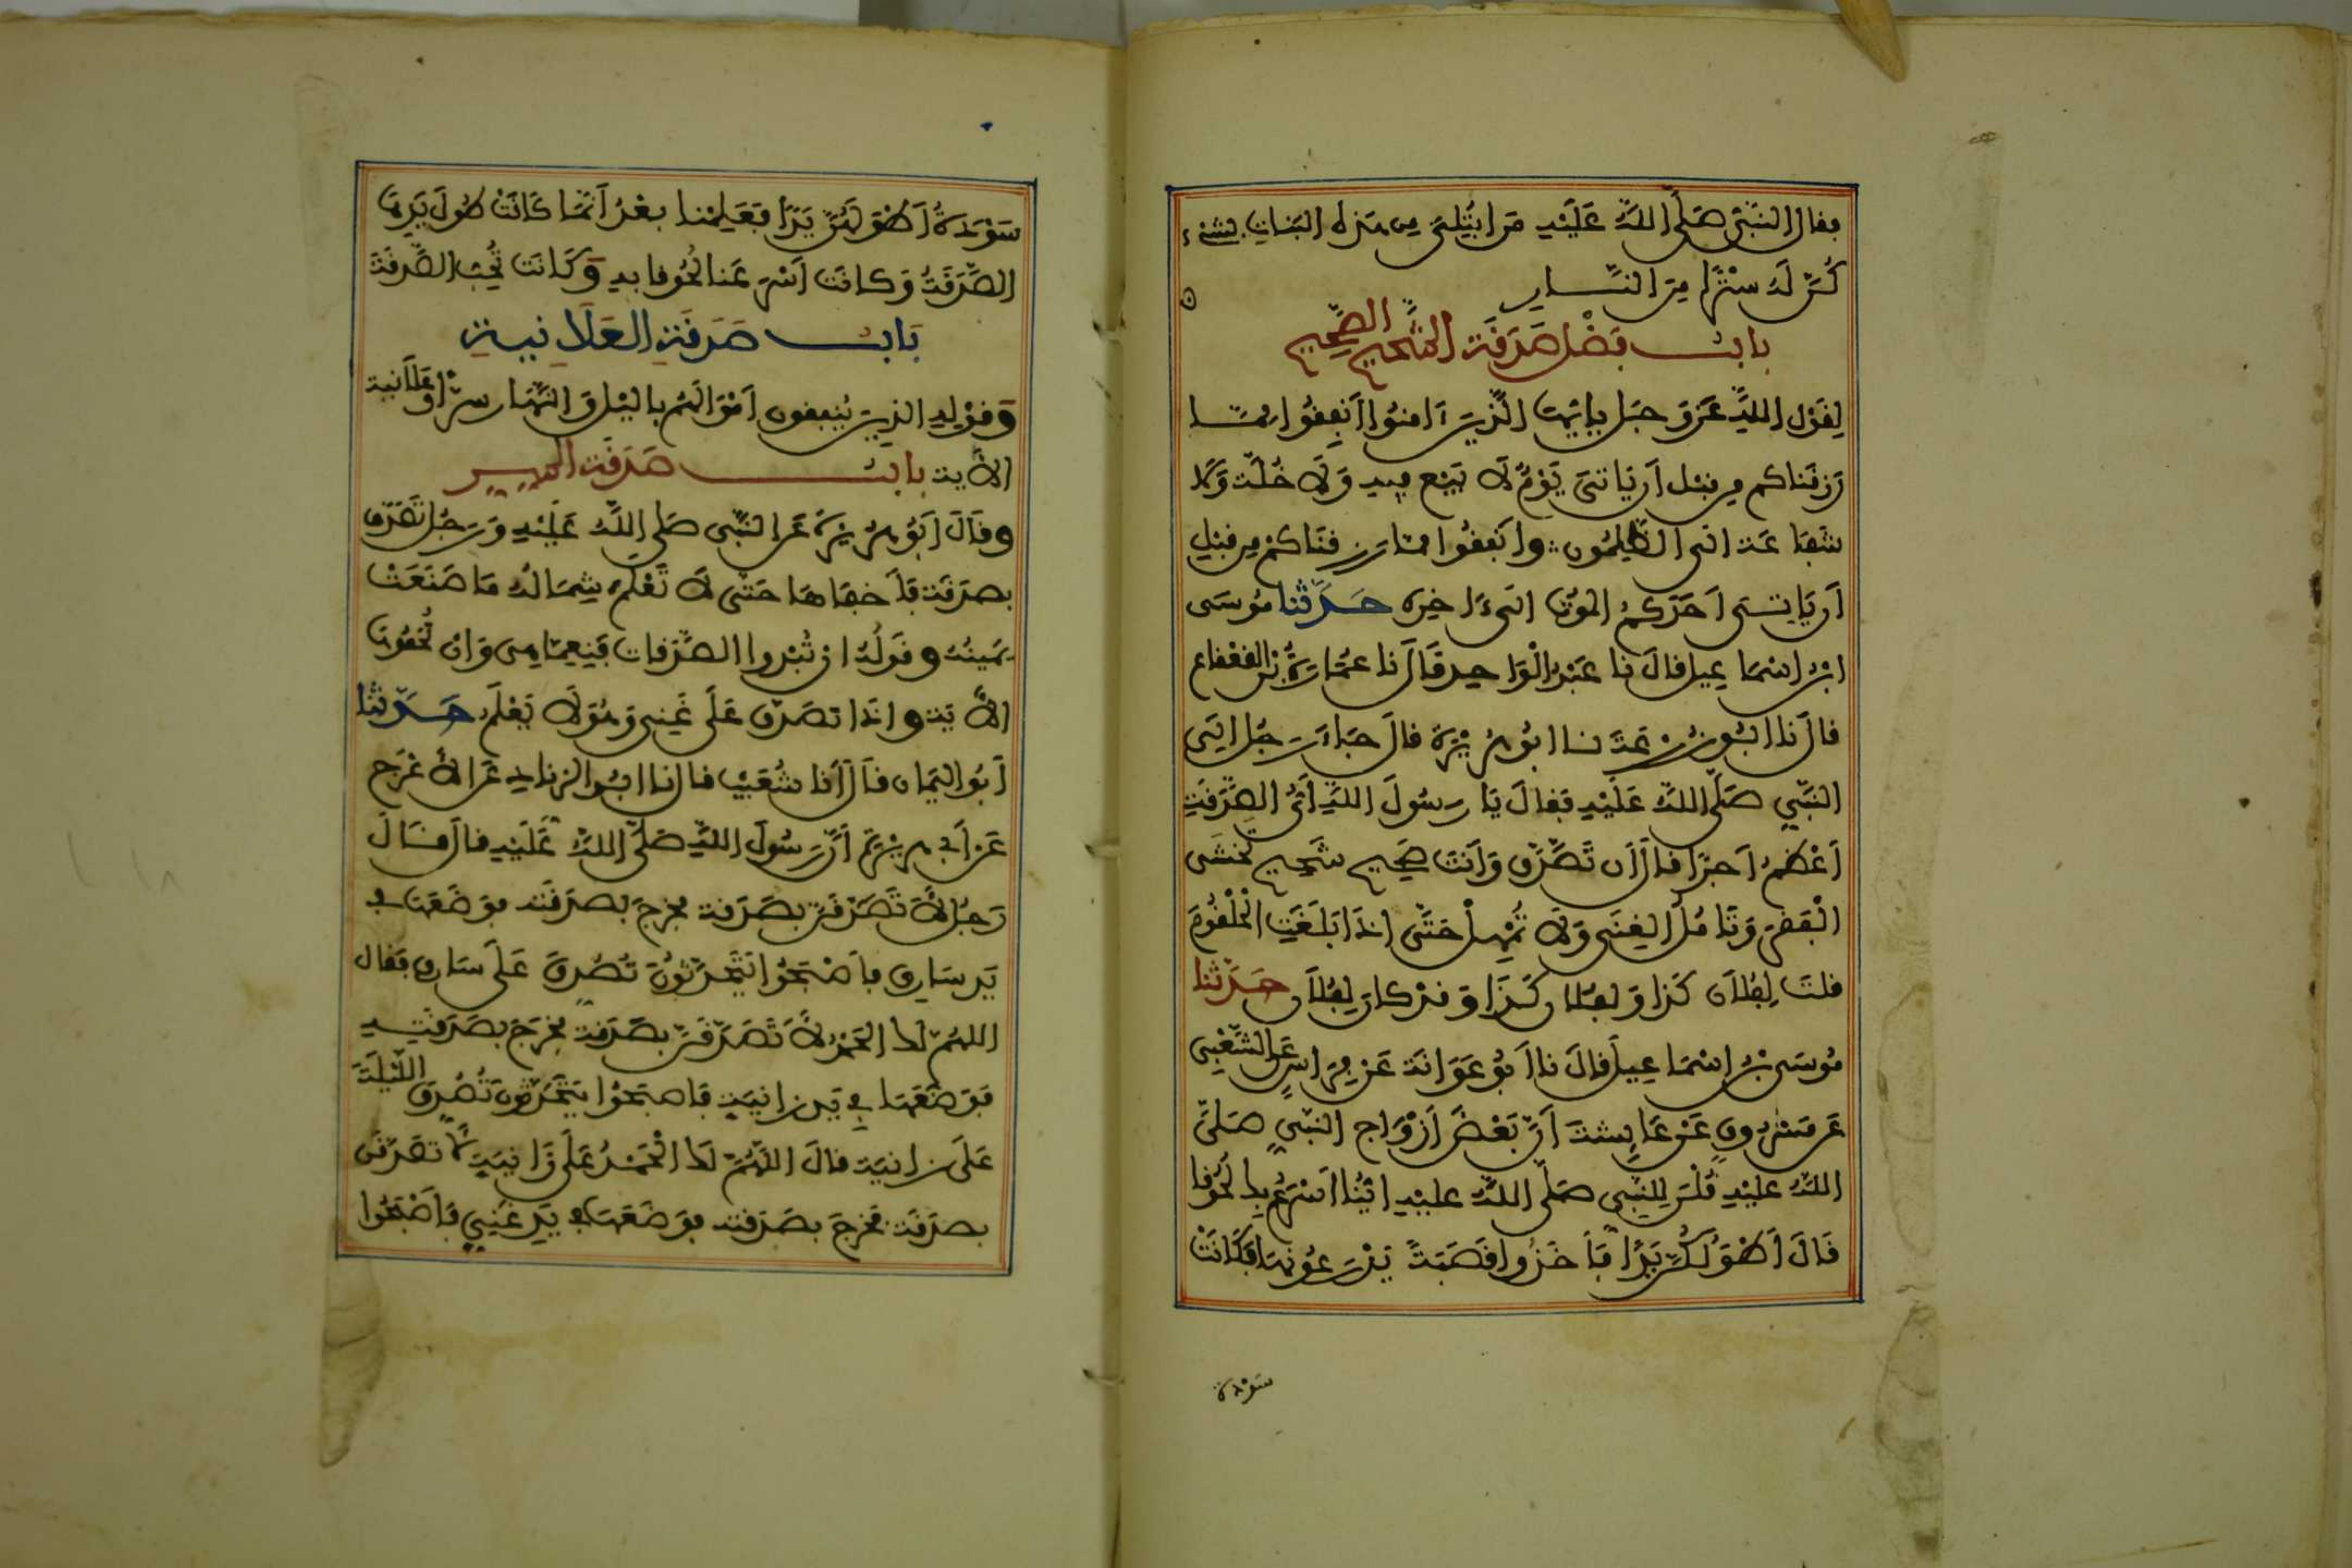 فقال النبي صلى الله عليه من ابتلى من هذه البنات بشيء
كن له سترا من النار
باب فضل صدقة الشحيح الصحيح
لقول الله عز وجل يايها الذين ءامنوا انفقوا مما
رزقناكم من قبل ان ياتي يوم لا بيع فيه ولا خلة ولا
شفاعة الى الظلمون وانفقوا مما رزقناكم من قبل
ان ياتى احدكم الموت الى ءاخره حدثنا موسى
ابن اسماعيل قال نا عبد الواحد قال نا عمارة بن القعقاع
قال نا ابو زرعة نا ابو هريرة قال جاء رجل الى
النبي صلى الله عليه فقال يا رسول الله اي الصدقة
اعظم اجرا قال ان تصدق وانت صحيح شحيح تخشى
الفقر وتامل الغنى ولا تمهل حتى اذا بلغت الحلقوم
قلت لفلان كذا ولفلان كذا وقد كان لفلان حدثنا
موسى بن اسماعيل قال نا ابو عوانة عن فراس عن الشعبي
عن مسروق عن عايشة ان بعض ازواج النبي صلى
الله عليه قلن للنبي صلى الله عليه اينا اسرع بك لحوقا
قال اطولكن يدا فاخذوا قصبة يذرعونها فكانت
سودة
سودة اطولهن يدا فعلمنا بعد انما كانت طول يدها
الصدقة وكانت اسرعنا لحوقا به وكانت تحب الصدقة
باب صدقة العلانية
وقوله الذين ينفقون اموالهم باليل والنهار سرا وعلانية
الاية باب صدقة السر
وقال ابو هريرة عن النبي صلى الله عليه ورجل تصدق
بصدقة فاخفاها حتى لا تعلم شماله ما صنعت
يمينه وقوله ان تبدوا الصدقات فنعما هى وان تخفوها
الاية واذا تصدق على غني وهو لا يعلم حدثنا
ابو اليمان قال انا شعيب قال نا ابو الزناد عن الاعرج
عن ابي هريرة ان رسول الله صلى الله عليه قال قال
رجل لاتصدقن بصدقة فخرج بصدقته فوضعها في
يد سارق فاصبحوا يتحدثون تصدق على سارق فقال
اللهم لك الحمد لاتصدقن بصدقة فخرج بصدقته
فوضعها في يد زانية فاصبحوا يتحدثون تصدق الليلة
على زانية قال اللهم لك الحمد على زانية لاتصدقن
بصدقة فخرج بصدقته فوضعها في يد غني فاصبحوا